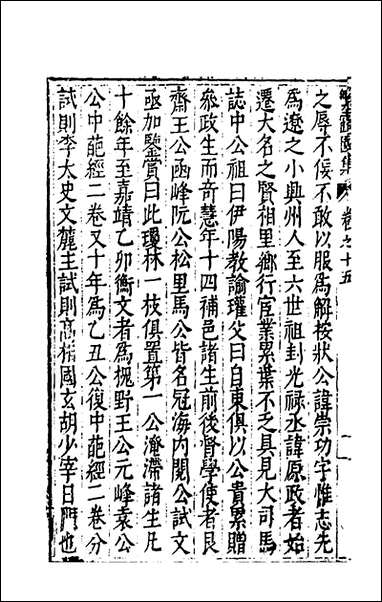 之辱不佞不敢以服為解按狀公諱崇功字惟志先
為遼之小興州人至六世祖封光祿丞諱原政者始
遷大名之賢相里鄉行宦業累葉不乏具見大司馬
誌中公祖曰伊陽教諭瓘父曰自東俱以公貴累贈
叅政生而奇慧年十四補邑諸生前後督學使者艮
齋王公函峰阮公松里馬公皆名冠海內閱公試文
亟加鑒賞曰此瓊林一枝俱置第一公濳滯諸生凡
十餘年至嘉靖乙卯衡文者為槐野王公元峰袁公
公中葩經二卷又十年為乙丑公復中葩經二卷分
試則李太史文麓主試則高相國玄胡少宰日門也
卷之十五